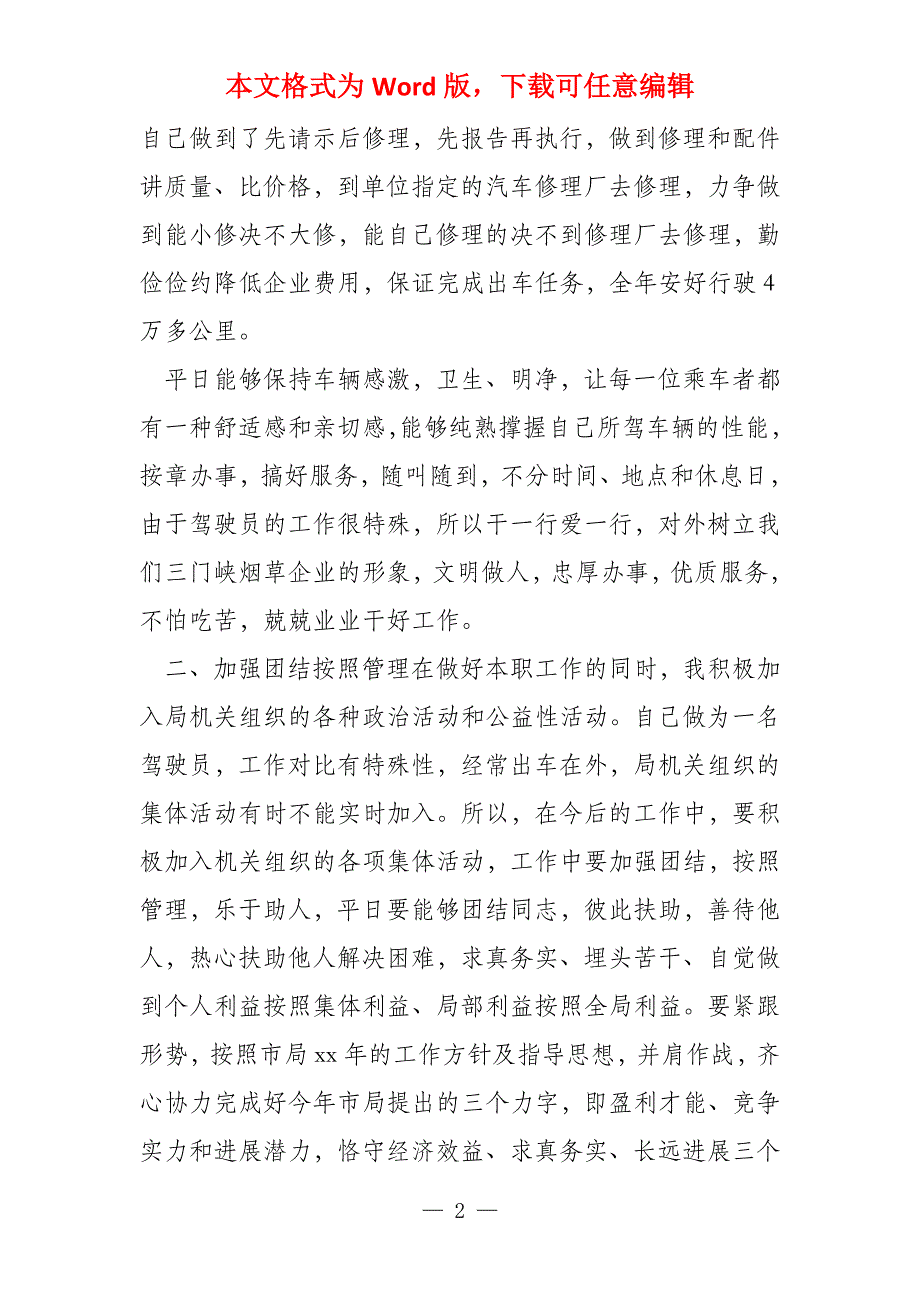 本文格式为 Word 版，下载可任意编辑
自己做到了先请示后修理，先报告再执行，做到修理和配件
讲质量、比价格，到单位指定的汽车修理厂去修理，力争做
到能小修决不大修，能自己修理的决不到修理厂去修理，勤
俭俭约降低企业费用，保证完成出车任务，全年安好行驶 4
万多公里。
平日能够保持车辆感激，卫生、明净，让每一位乘车者都
有一种舒适感和亲切感，能够纯熟撑握自己所驾车辆的性能，
按章办事，搞好服务，随叫随到，不分时间、地点和休息日，
由于驾驶员的工作很特殊，所以干一行爱一行，对外树立我
们三门峡烟草企业的形象，文明做人，忠厚办事，优质服务，
不怕吃苦，兢兢业业干好工作。
二、加强团结按照管理在做好本职工作的同时，我积极加
入局机关组织的各种政治活动和公益性活动。自己做为一名
驾驶员，工作对比有特殊性，经常出车在外，局机关组织的
集体活动有时不能实时加入。所以，在今后的工作中，要积
极加入机关组织的各项集体活动，工作中要加强团结，按照
管理，乐于助人，平日要能够团结同志，彼此扶助，善待他
人，热心扶助他人解决困难，求真务实、埋头苦干、自觉做
到个人利益按照集体利益、局部利益按照全局利益。要紧跟
形势，按照市局 xx 年的工作方针及指导思想，并肩作战，齐
心协力完成好今年市局提出的三个力字，即盈利才能、竞争
实力和进展潜力，恪守经济效益、求真务实、长远进展三个
— 2 —